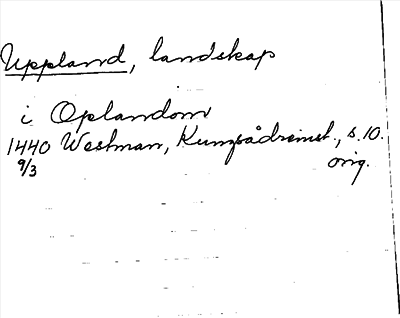 Uppland, landskap
i Oplandom
1440 Westman, Kungsådreinst., s. 10.
9/3 orig.